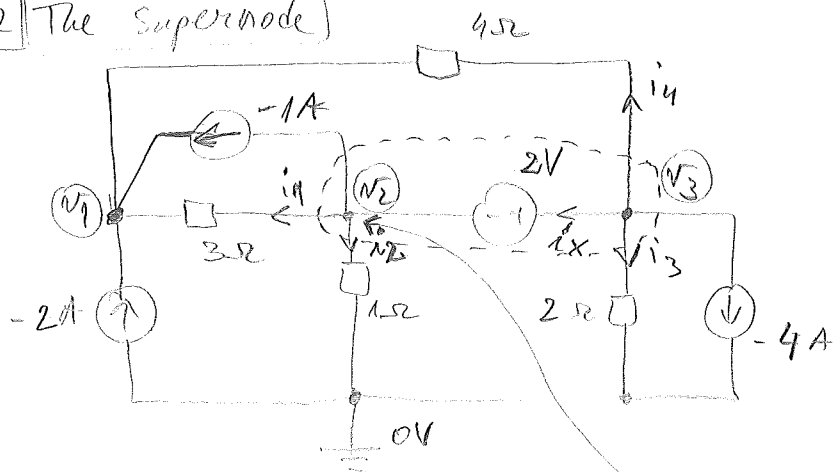 2 The Supernode
4Ω
i4
-1A
2V
v1
i1
v2
v3
3Ω
i2
ix
i3
-2A
1Ω
2Ω
-4A
0V